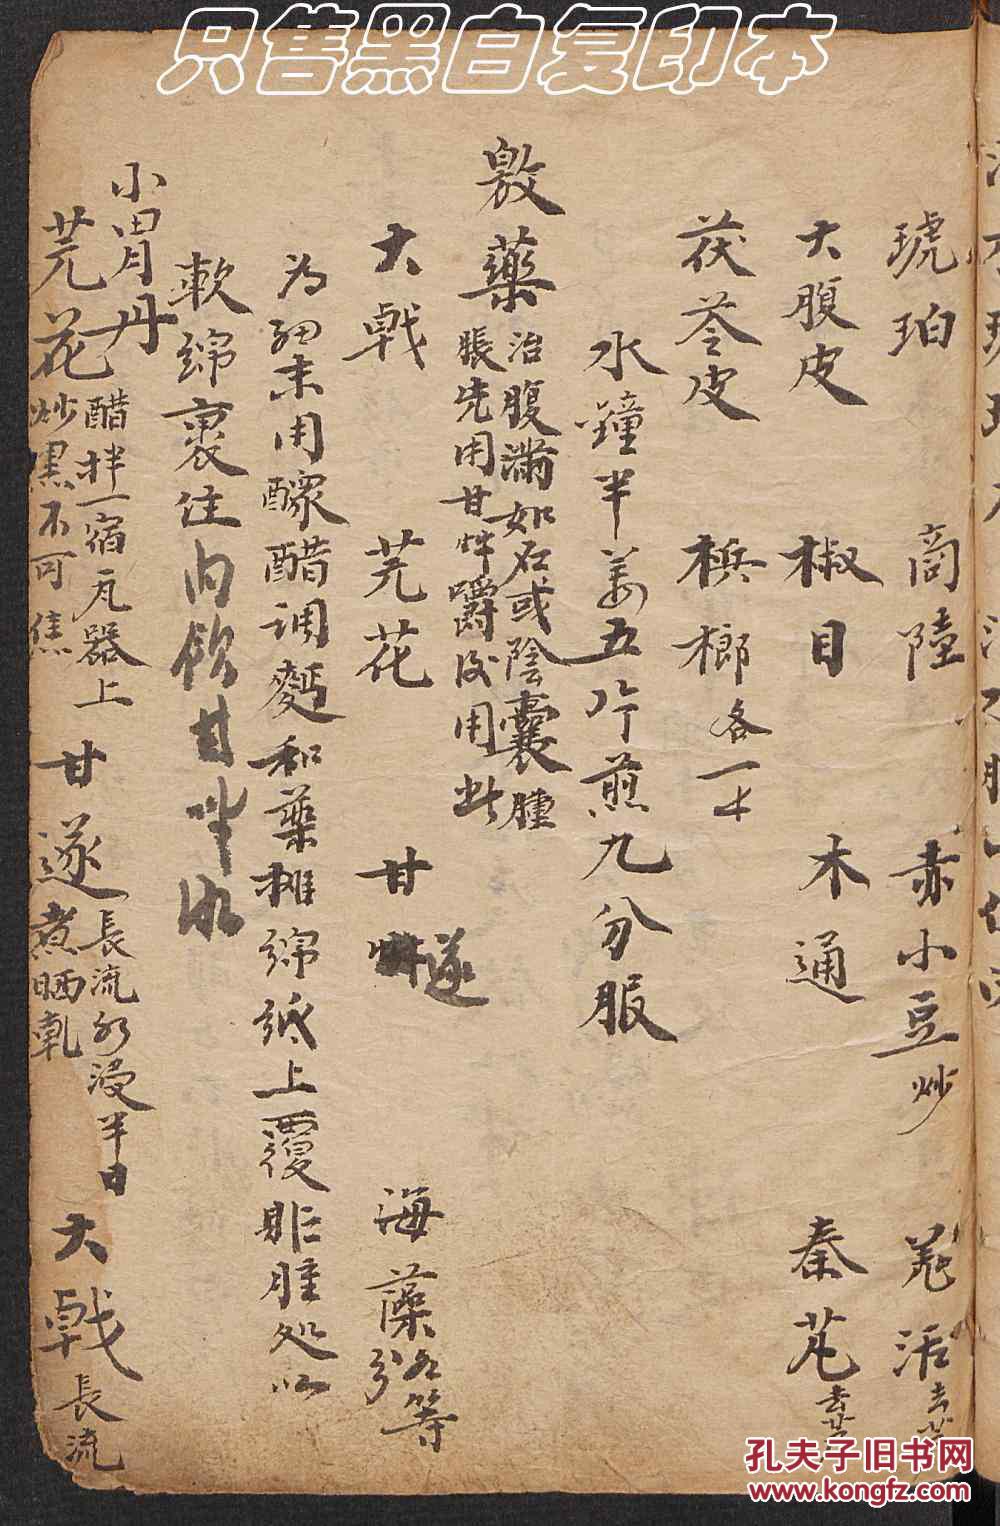 只售黑白复印本
琥珀 商陸 赤小豆炒 羌活去芦
大腹皮 椒目 木通 秦艽去芦
茯苓皮 檳榔各一
水鐘半姜五片煎九分服
敷藥治腹滿如石或陰囊腫
脹先用甘艸嚼後用此
大戟 芫花 甘遂 海藻各等分
為細末用釅醋調麪和藥攤綿紙上覆肚腫处以
軟綿裹住内飲甘草水
小胃丹
芫花醋拌一宿瓦器上
炒黑不可焦
甘遂長流水浸半日
煮晒乾
大戟長流
孔夫子旧书网
www.kongfz.com